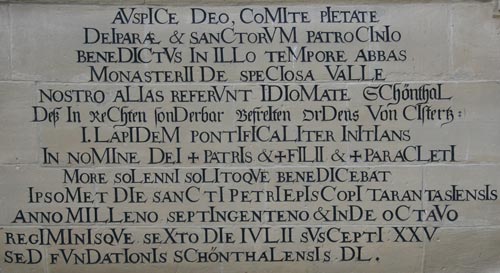 AVSPICE DEO, COMITE PIETATE
DEIPARÆ & SANCTORVM PATROCINIO
BENEDICTVS IN ILLO TEMPORE ABBAS
MONASTERII DE SPECIOSA VALLE
NOSTRO ALIAS REFERVNT IDIOMATE SCHÖNTHAL
Deß In Rechten sonderbar Befreiten Ordens Von Cistertz:
I. LAPIDEM PONTIFICALITER INITIANS
IN NOMINE DEI ✝ PATRIS & ✝ FILII & ✝ PARACLETI
MORE SOLENNI SOLITOQVE BENEDICEBAT
IPSOMET DIE SANCTI PETRI EPISCOPI TARANTASIENSIS
ANNO MILLENO SEPTINGENTENO & INDE OCTAVO
REGIMINISQVE SEXTO DIE IVLII SVSCEPTI XXV
SED FVNDATIONIS SCHÖNTHALENSIS DL.